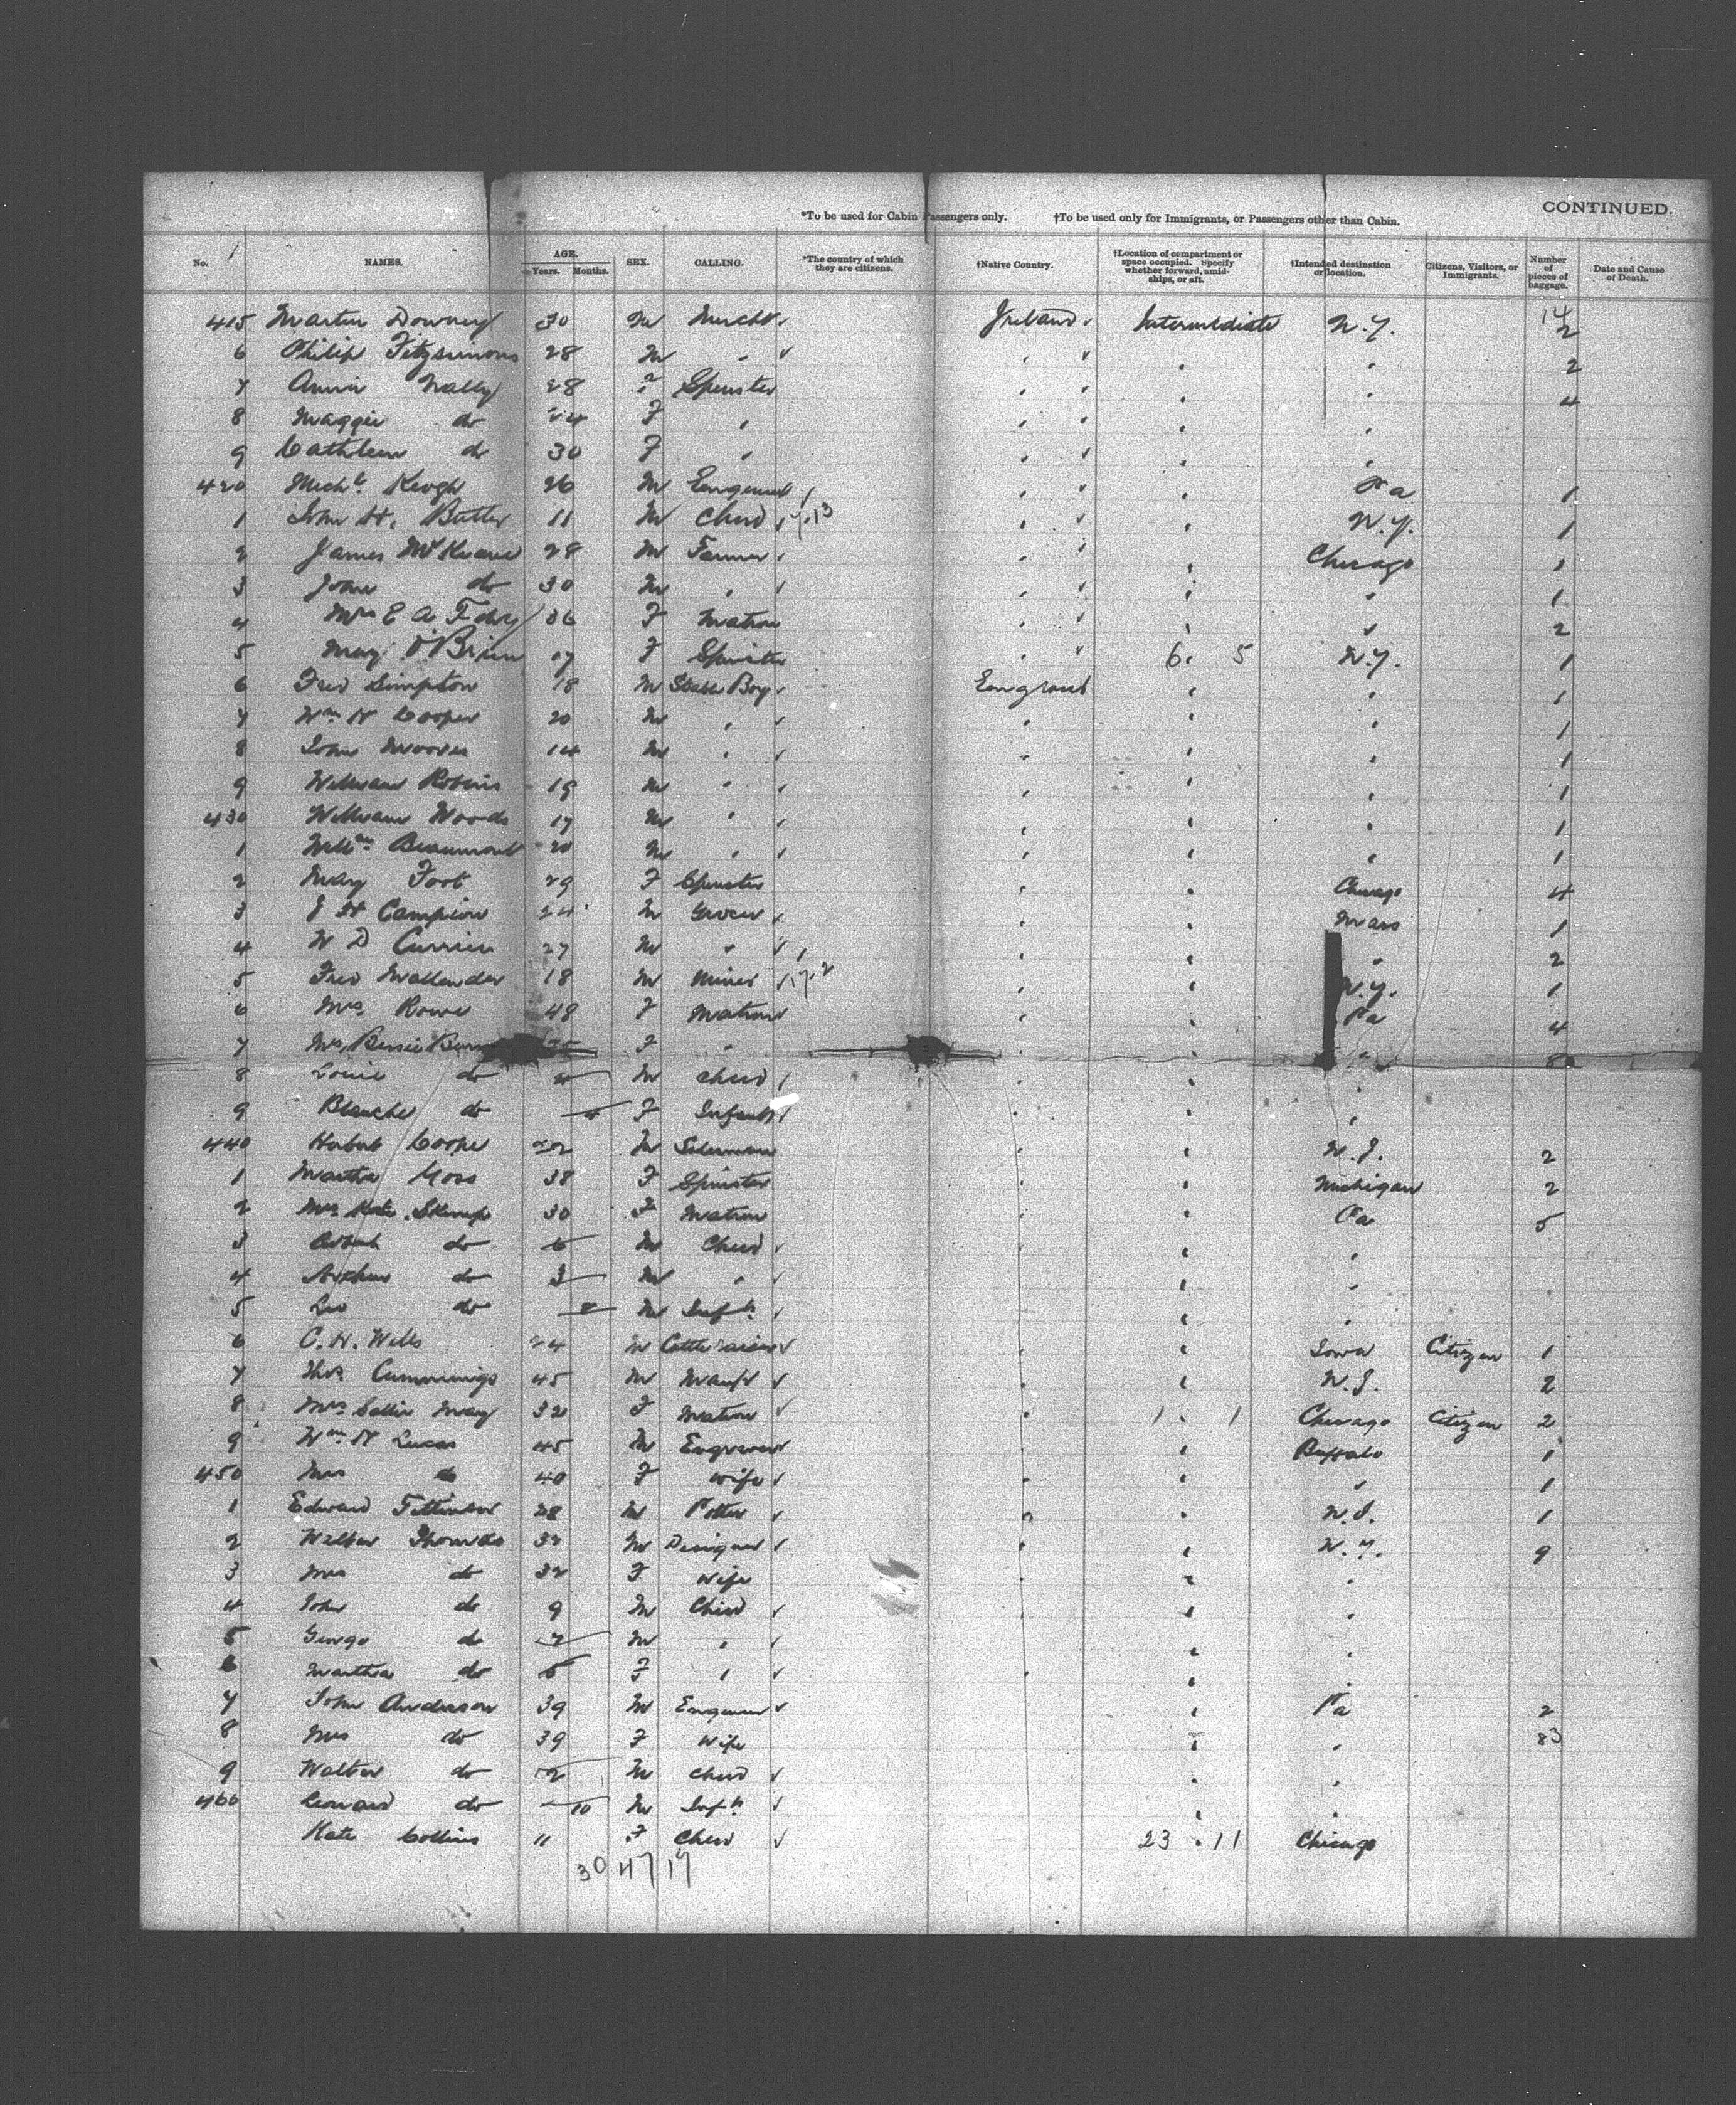 CONTINUED.
*To be used for Cabin Passengers only. †To be used only for Immigrants, or Passengers other than Cabin.
No. NAMES. AGE. Years. Months. SEX. CALLING. *The country of which they are citizens. †Native Country. †Location of compartment or space occupied. Specify whether forward, amidships, or aft. †Intended destination or location. Citizens, Visitors, or Immigrants. Number of pieces of baggage. Date and Cause of Death.
14
415 Martin Downey 30 M Mercht Ireland Intermediate N.Y. 2
6 Philip Fitzsimons 28 M " 2
7 Annie Nally 28 F Spinster 4
8 Maggie do 24 F "
9 Cathleen do 30 F "
420 Michl. Keogh 26 M Pa 1
1 John H. Butler 11 M Child N.Y. 1
2 James 28 M Farmer Chicago 1
3 do 30 M " 1
4 Mrs E A 36 F Matron 2
5 Mary O'Brien 17 F Spinster 6 . 5 N.Y. 1
6 Fred Simpton 18 M Stable Boy England 1
7 Wm H Cooper 20 M " 1
8 John 14 M " 1
9 William Robins 19 M " 1
430 William Woods 17 M " 1
1 Willm Beaumont 20 M " 1
2 Mary Foot 29 F Spinster Chicago 4
3 J H Campion 24 M Grocer Mass 1
4 W D Currier 27 M " 2
5 Fred Mallender 18 M Miner N.Y. 1
6 Mrs. Rowe 48 F Matron Pa 4
7 Mrs. Bessie F " 8
8 Louie do 4 M Child
9 Blanche do 4 F Infant
440 Cooper 22 M N.J. 2
1 Martha Moss 38 F Spinster Michigan 2
2 Mrs Kate Skemp 30 F Matron Pa 5
3 do 6 M Child
4 Arthur do 3 M "
5 Leo do 8 M Inft
6 C. H. Wells 24 M Cattle raiser Iowa Citizen 1
7 Thos Cummings 45 M Manfr N.J. 2
8 Mrs Sallie May 32 F Matron 1 . 1 Chicago Citizen 2
9 Wm H Lucas 45 M Engraver Buffalo 1
450 Mrs do 40 F Wife 1
1 Edward 28 M Potter N.J. 1
2 Thomas M Designer N.Y. 9
3 Mrs do 32 F Wife
4 John do 9 M Child
5 George do 7 M "
6 Martha do 5 F "
7 John Anderson 39 M Engineer Pa 2
8 Mrs do 39 F Wife 83
9 Walter do 2 M Child
460 Leonard do 10 M Inft
Kate Collins 11 F Child 23 . 11 Chicago
30 47 17